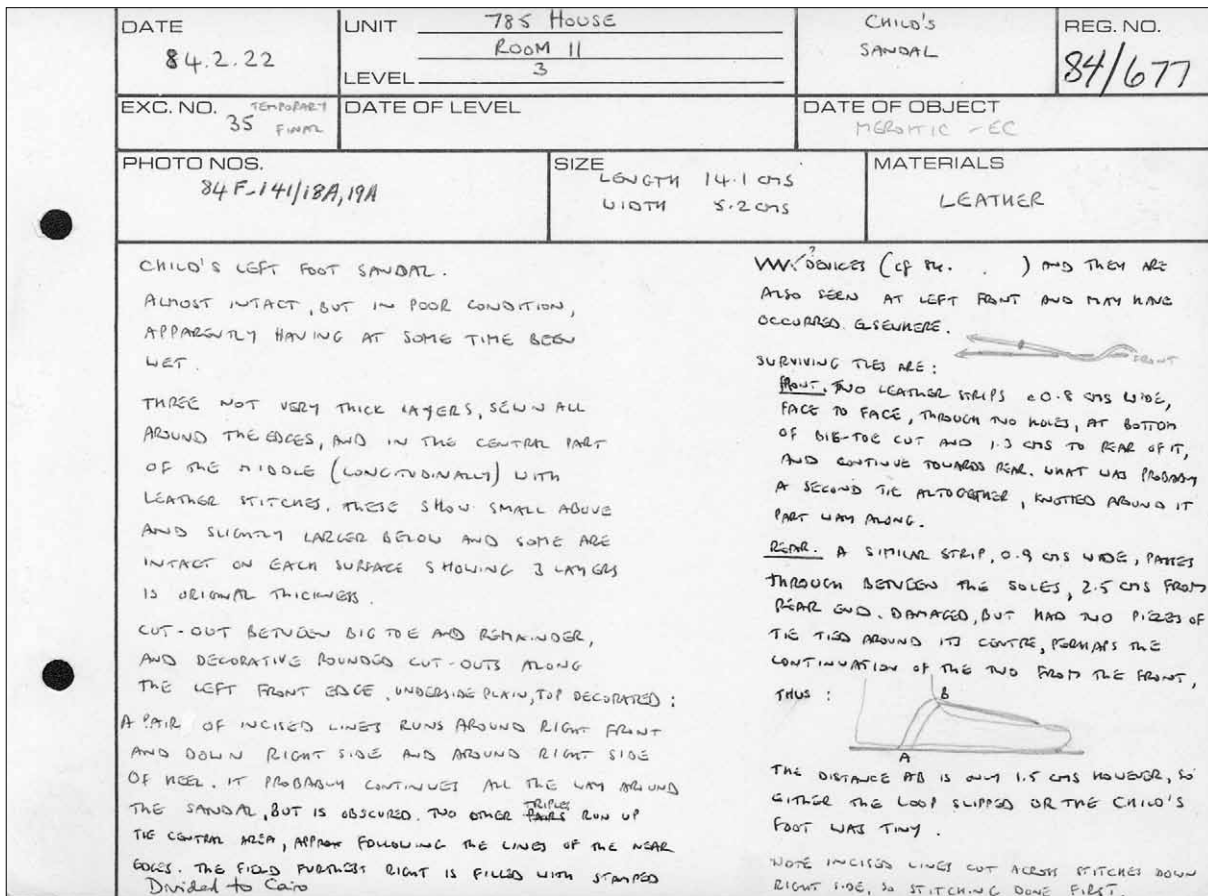 DATE
84.2.22
UNIT 785 HOUSE
ROOM 11
LEVEL 3
CHILD'S
SANDAL
REG. NO.
84/677
EXC. NO. TEMPORARY
35 FINAL
DATE OF LEVEL
DATE OF OBJECT
MEROITIC - EC
PHOTO NOS.
84F-141/18A,19A
SIZE
LENGTH 14.1 CMS
WIDTH 5.2 CMS
MATERIALS
LEATHER
CHILD'S LEFT FOOT SANDAL.
ALMOST INTACT, BUT IN POOR CONDITION,
APPARENTLY HAVING AT SOME TIME BEEN
WET.
THREE NOT VERY THICK LAYERS, SEWN ALL
AROUND THE EDGES, AND IN THE CENTRAL PART
OF THE MIDDLE (LONGITUDINALLY) WITH
LEATHER STITCHES. THESE SHOW SMALL ABOVE
AND SLIGHTLY LARGER BELOW AND SOME ARE
INTACT ON EACH SURFACE SHOWING 3 LAYERS
IS ORIGINAL THICKNESS.
CUT-OUT BETWEEN BIG TOE AND REMAINDER,
AND DECORATIVE ROUNDED CUT-OUTS ALONG
THE LEFT FRONT EDGE. UNDERSIDE PLAIN, TOP DECORATED:
A PAIR OF INCISED LINES RUNS AROUND RIGHT FRONT
AND DOWN RIGHT SIDE AND AROUND RIGHT SIDE
OF HEEL. IT PROBABLY CONTINUES ALL THE WAY AROUND
THE SANDAL, BUT IS OBSCURED. TWO OTHER TRIPLES PAIRS RUN UP
THE CENTRAL AREA, APPROX FOLLOWING THE LINES OF THE NEAR
EDGES. THE FIELD FURTHEST RIGHT IS FILLED WITH STAMPED
Divided to Cairo
VVV.? DEVICES (cf 84. . ) AND THEY ARE
ALSO SEEN AT LEFT FRONT AND MAY HAVE
OCCURRED ELSEWHERE.
FRONT
SURVIVING TIES ARE:
FRONT. TWO LEATHER STRIPS c0.8 CMS WIDE,
FACE TO FACE, THROUGH TWO HOLES, AT BOTTOM
OF BIG-TOE CUT AND 1.3 CMS TO REAR OF IT,
AND CONTINUE TOWARDS REAR. WHAT WAS PROBABLY
A SECOND TIE ALTOGETHER, KNOTTED AROUND IT
PART WAY ALONG.
REAR. A SIMILAR STRIP, 0.9 CMS WIDE, PASSES
THROUGH BETWEEN THE SOLES, 2.5 CMS FROM
REAR END. DAMAGED, BUT HAD TWO PIECES OF
TIE TIED AROUND ITS CENTRE, PERHAPS THE
CONTINUATION OF THE TWO FROM THE FRONT,
THUS :
B
A
THE DISTANCE AB IS ONLY 1.5 CMS HOWEVER, SO
EITHER THE LOOP SLIPPED OR THE CHILD'S
FOOT WAS TINY.
NOTE INCISED LINES CUT ACROSS STITCHES DOWN
RIGHT SIDE, SO STITCHING DONE FIRST.